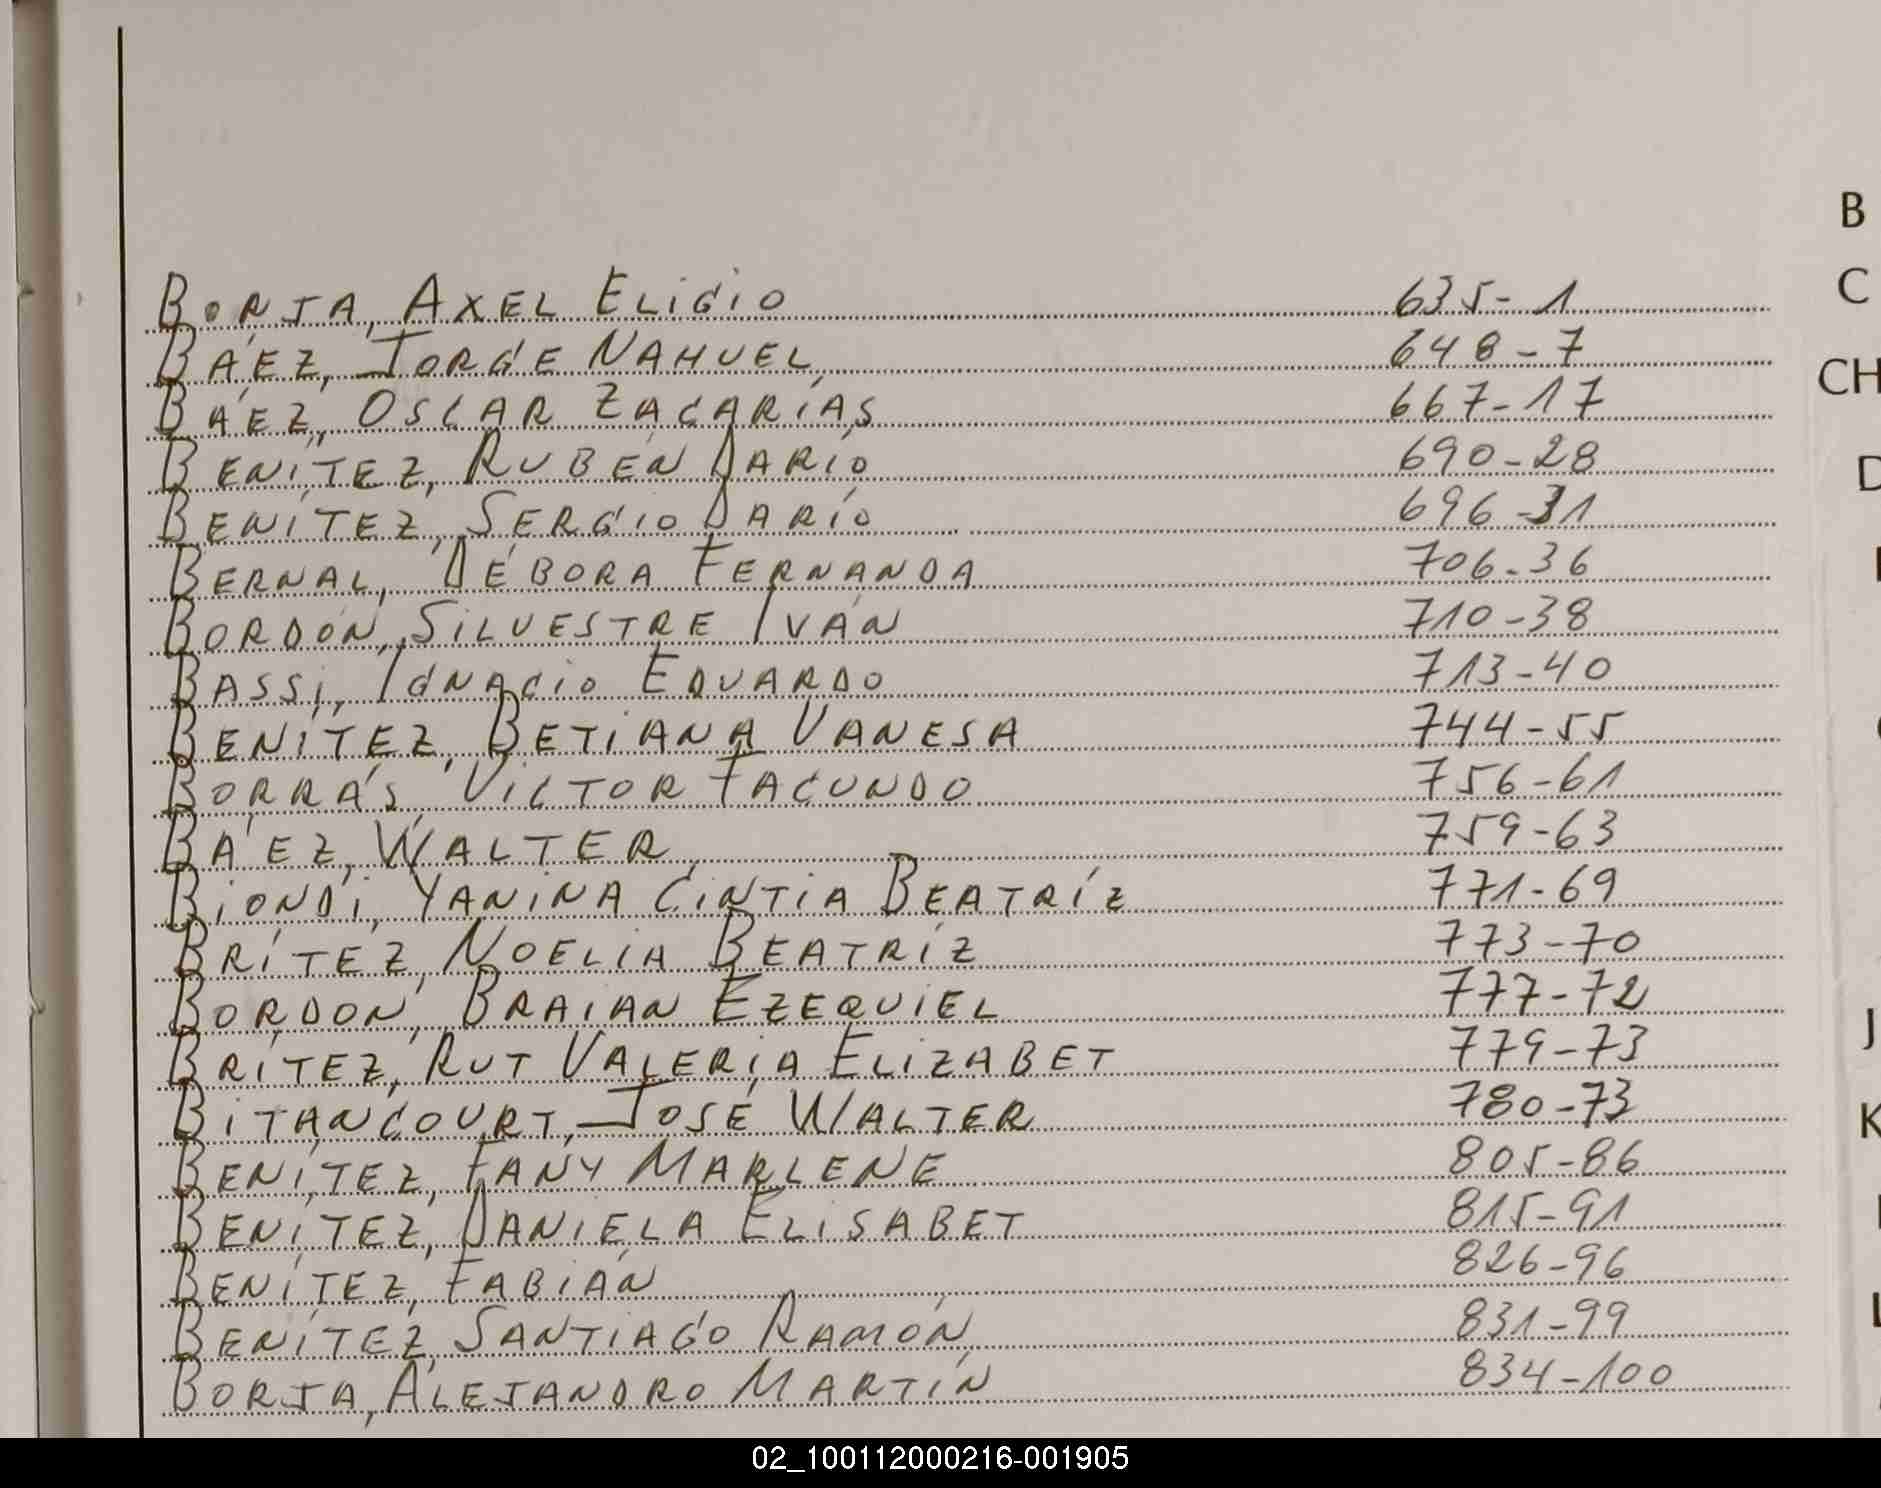 B
C
CH
D
J
K
L
BORJA, AXEL ELIGIO 635-1
BÁEZ, JORGE NAHUEL 648-7
BÁEZ, OSCAR ZACARÍAS 667-17
BENÍTEZ, RUBÉN DARÍO 690-28
BENÍTEZ, SERGIO DARÍO 696-31
BERNAL, DÉBORA FERNANDA 706-36
BORDÓN, SILVESTRE IVÁN 710-38
BASSI, IGNACIO EDUARDO 713-40
BENÍTEZ, BETIANA VANESA 744-55
BORRÁS, VICTOR FACUNDO 756-61
BÁEZ, WALTER 759-63
BIONDI, YANINA CINTIA BEATRÍZ 771-69
BRÍTEZ, NOELIA BEATRÍZ 773-70
BORDON, BRAIAN EZEQUIEL 777-72
BRÍTEZ, RUT VALERIA ELIZABET 779-73
BITANCOURT, JOSÉ WALTER 780-73
BENÍTEZ, FANY MARLENE 805-86
BENÍTEZ, DANIELA ELISABET 815-91
BENÍTEZ, FABIÁN 826-96
BENÍTEZ, SANTIAGO RAMÓN 831-99
BORJA, ALEJANDRO MARTÍN 834-100
02_100112000216-001905